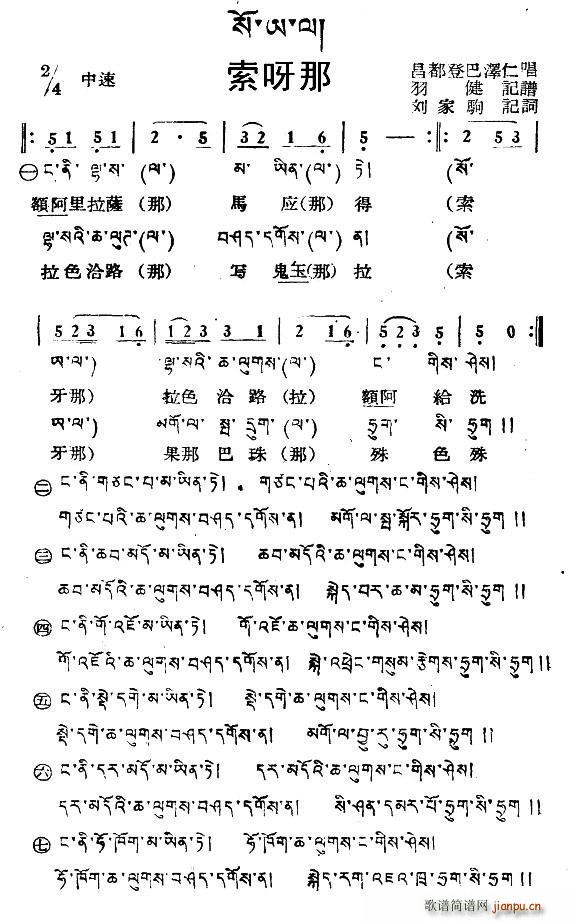 སོ་ཨ་ལ།
索呀那
2/4 中速
昌都登巴澤仁唱
羽健記譜
刘家駒記詞
‖: 5 1 5 1 | 2 · 5 | 3 2 1 6 | 5 — :‖: 2 5 3 |
㊀ ང་ནི་ལྷ་ས་(ལ་) མ་ཡིན(ན་) ཏེ། (སོ་
額阿里拉薩(那) 馬应(那)得 (索
ལྷ་སའི་ཆ་ལུཊ་(ལ་) བཤད་དགོས་(ལ་) ན། (སོ་
拉色洽路(那) 写鬼玉(那)拉 (索
| 5 2 3 1 6 | 1 2 3 3 1 | 2 1 6 | 5 2 3 5 | 5 0 :‖
ཨ་ལ་) ལྷ་སའི་ཆ་ལུགས་(ལ་) ང་གིས་ཤེས།
牙那) 拉色洽路(拉) 額阿給洗
ཨ་ལ་) མགོ་ལ་སྤ་དྲུག་(ལ་) ཧྲུག་སི་ཧྲུག །།
牙那) 果那巴珠(那) 殊色殊
㊁ ང་ནི་གཙང་པ་མ་ཡིན་ཏེ། གཙང་པའི་ཆ་ལུགས་ང་གིས་ཤེས།
གཙང་པའི་ཆ་ལུགས་བཤད་དགོས་ན། མགོ་ལ་སྤ་སྐོར་ཧྲུག་སི་ཧྲུག །།
㊂ ང་ནི་ཆབ་མདོ་མ་ཡིན་ཏེ། ཆབ་མདོའི་ཆ་ལུགས་ང་གིས་ཤེས།
ཆབ་མདོའི་ཆ་ལུགས་བཤད་དགོས་ན། སྐེད་བར་ཆ་མ་ཧྲུག་སི་ཧྲུག །།
㊃ ང་ནི་གོ་འཇོ་མ་ཡིན་ཏེ། གོ་འཇོ་ཆ་ལུགས་ང་གིས་ཤེས།
གོ་འཇོའི་ཆ་ལུགས་བཤད་དགོས་ན། སྐེ་འཕྲེང་གསུམ་རྩེགས་ཧྲུག་སི་ཧྲུག །།
㊄ ང་ནི་སྡེ་དགེ་མ་ཡིན་ཏེ། སྡེ་དགེ་ཆ་ལུགས་ང་གིས་ཤེས།
སྡེ་དགེ་ཆ་ལུགས་བཤད་དགོས་ན། མགོ་ལ་བྱུ་རུ་ཧྲུག་སི་ཧྲུག །།
㊅ ང་ནི་དར་མདོ་མ་ཡིན་ཏེ། དར་མདོའི་ཆ་ལུགས་ང་གིས་ཤེས།
དར་མདོའི་ཆ་ལུགས་བཤད་དགོས་ན། སི་ཤན་དམར་པོ་ཧྲུག་སི་ཧྲུག །།
㊆ ང་ནི་ཧོ་ཁོག་མ་ཡིན་ཏེ། ཧོ་ཁོག་ཆ་ལུགས་ང་གིས་ཤེས།
ཧོ་ཁོག་ཆ་ལུགས་བཤད་དགོས་ན། སྐེད་རག་འཇའ་ཁྲ་ཧྲུག་སི་ཧྲུག །།
歌谱简谱网
jianpu.cn